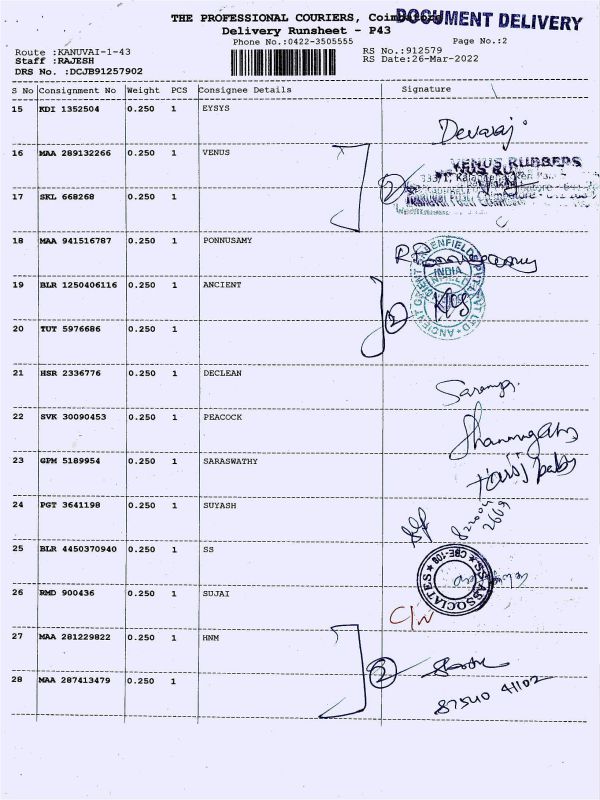 THE PROFESSIONAL COURIERS, Coimbatore
DOCUMENT DELIVERY
Delivery Runsheet - P43
Phone No.:0422-3505555
Page No.:2
Route :KANUVAI-1-43
RS No.:912579
Staff :RAJESH
RS Date:26-Mar-2022
DRS No. :DCJB91257902
S No Consignment No Weight PCS Consignee Details Signature
15 KDI 1352504 0.250 1 EYSYS
Devaraj
16 MAA 289132266 0.250 1 VENUS
2 VENUS RUBBERS
17 SKL 668268 0.250 1
18 MAA 941516787 0.250 1 PONNUSAMY
19 BLR 1250406116 0.250 1 ANCIENT
2 INDIA
20 TUT 5976686 0.250 1
21 HSR 2336776 0.250 1 DECLEAN
22 SVK 30090453 0.250 1 PEACOCK
Shanmugam
23 GPM 5189954 0.250 1 SARASWATHY
24 PGT 3641198 0.250 1 SUYASH
25 BLR 4450370940 0.250 1 SS
SS ASSOCIATES CBE-109
26 RMD 900436 0.250 1 SUJAI
C/N
27 MAA 281229822 0.250 1 HNM
2
28 MAA 287413479 0.250 1
87540 41102